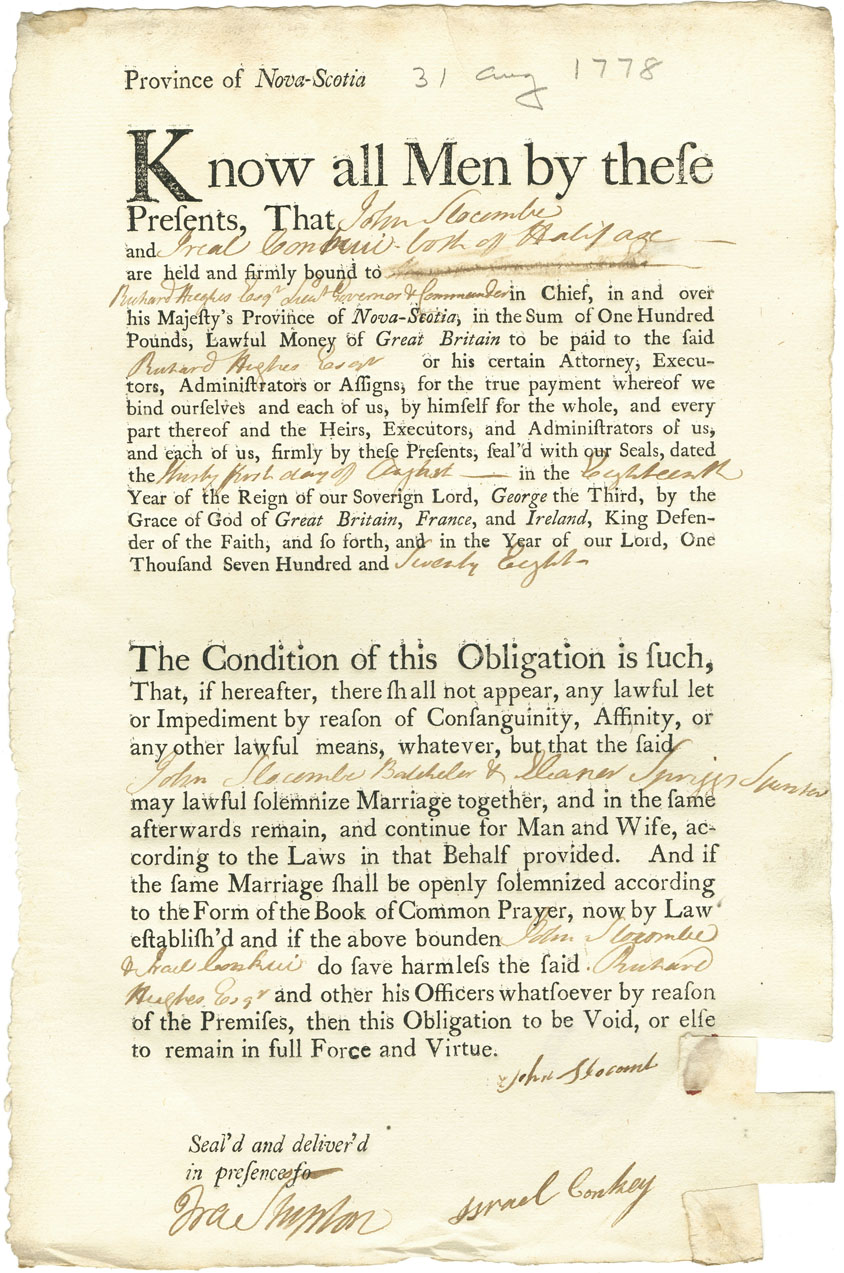 Province of Nova-Scotia 31 Aug 1778
Know all Men by theſe
Preſents, That John Slocombe
and Ireal Conkuii - both of Halifax
are held and firmly bound to
Richard Hughes Esqr Lieut Governor & Commander in Chief, in and over
his Majeſty's Province of Nova-Scotia, in the Sum of One Hundred
Pounds, Lawful Money of Great Britain to be paid to the ſaid
Richard Hughes Esqr or his certain Attorney, Execu-
tors, Adminiſtrators or Aſſigns, for the true payment whereof we
bind ourſelves and each of us, by himſelf for the whole, and every
part thereof and the Heirs, Executors, and Adminiſtrators of us,
and each of us, firmly by theſe Preſents, ſeal'd with our Seals, dated
the thirty first day of August — in the Eighteenth
Year of the Reign of our Soverign Lord, George the Third, by the
Grace of God of Great Britain, France, and Ireland, King Defen-
der of the Faith, and ſo forth, and in the Year of our Lord, One
Thouſand Seven Hundred and Seventy Eight -
The Condition of this Obligation is ſuch,
That, if hereafter, there ſhall not appear, any lawful let
or Impediment by reaſon of Conſanguinity, Affinity, or
any other lawful means, whatever, but that the ſaid
John Slocombe Batcheler & Eleaner Spriggs Spinster
may lawful ſolemnize Marriage together, and in the ſame
afterwards remain, and continue for Man and Wife, ac-
cording to the Laws in that Behalf provided. And if
the ſame Marriage ſhall be openly ſolemnized according
to the Form of the Book of Common Prayer, now by Law
eſtabliſh'd and if the above bounden John Slocombe
& Israel Conkuii do ſave harmleſs the ſaid Richard
Hughes Esqr and other his Officers whatſoever by reaſon
of the Premiſes, then this Obligation to be Void, or elſe
to remain in full Force and Virtue.
John Slocomb
Seal'd and deliver'd
in preſence
Israel Conkey